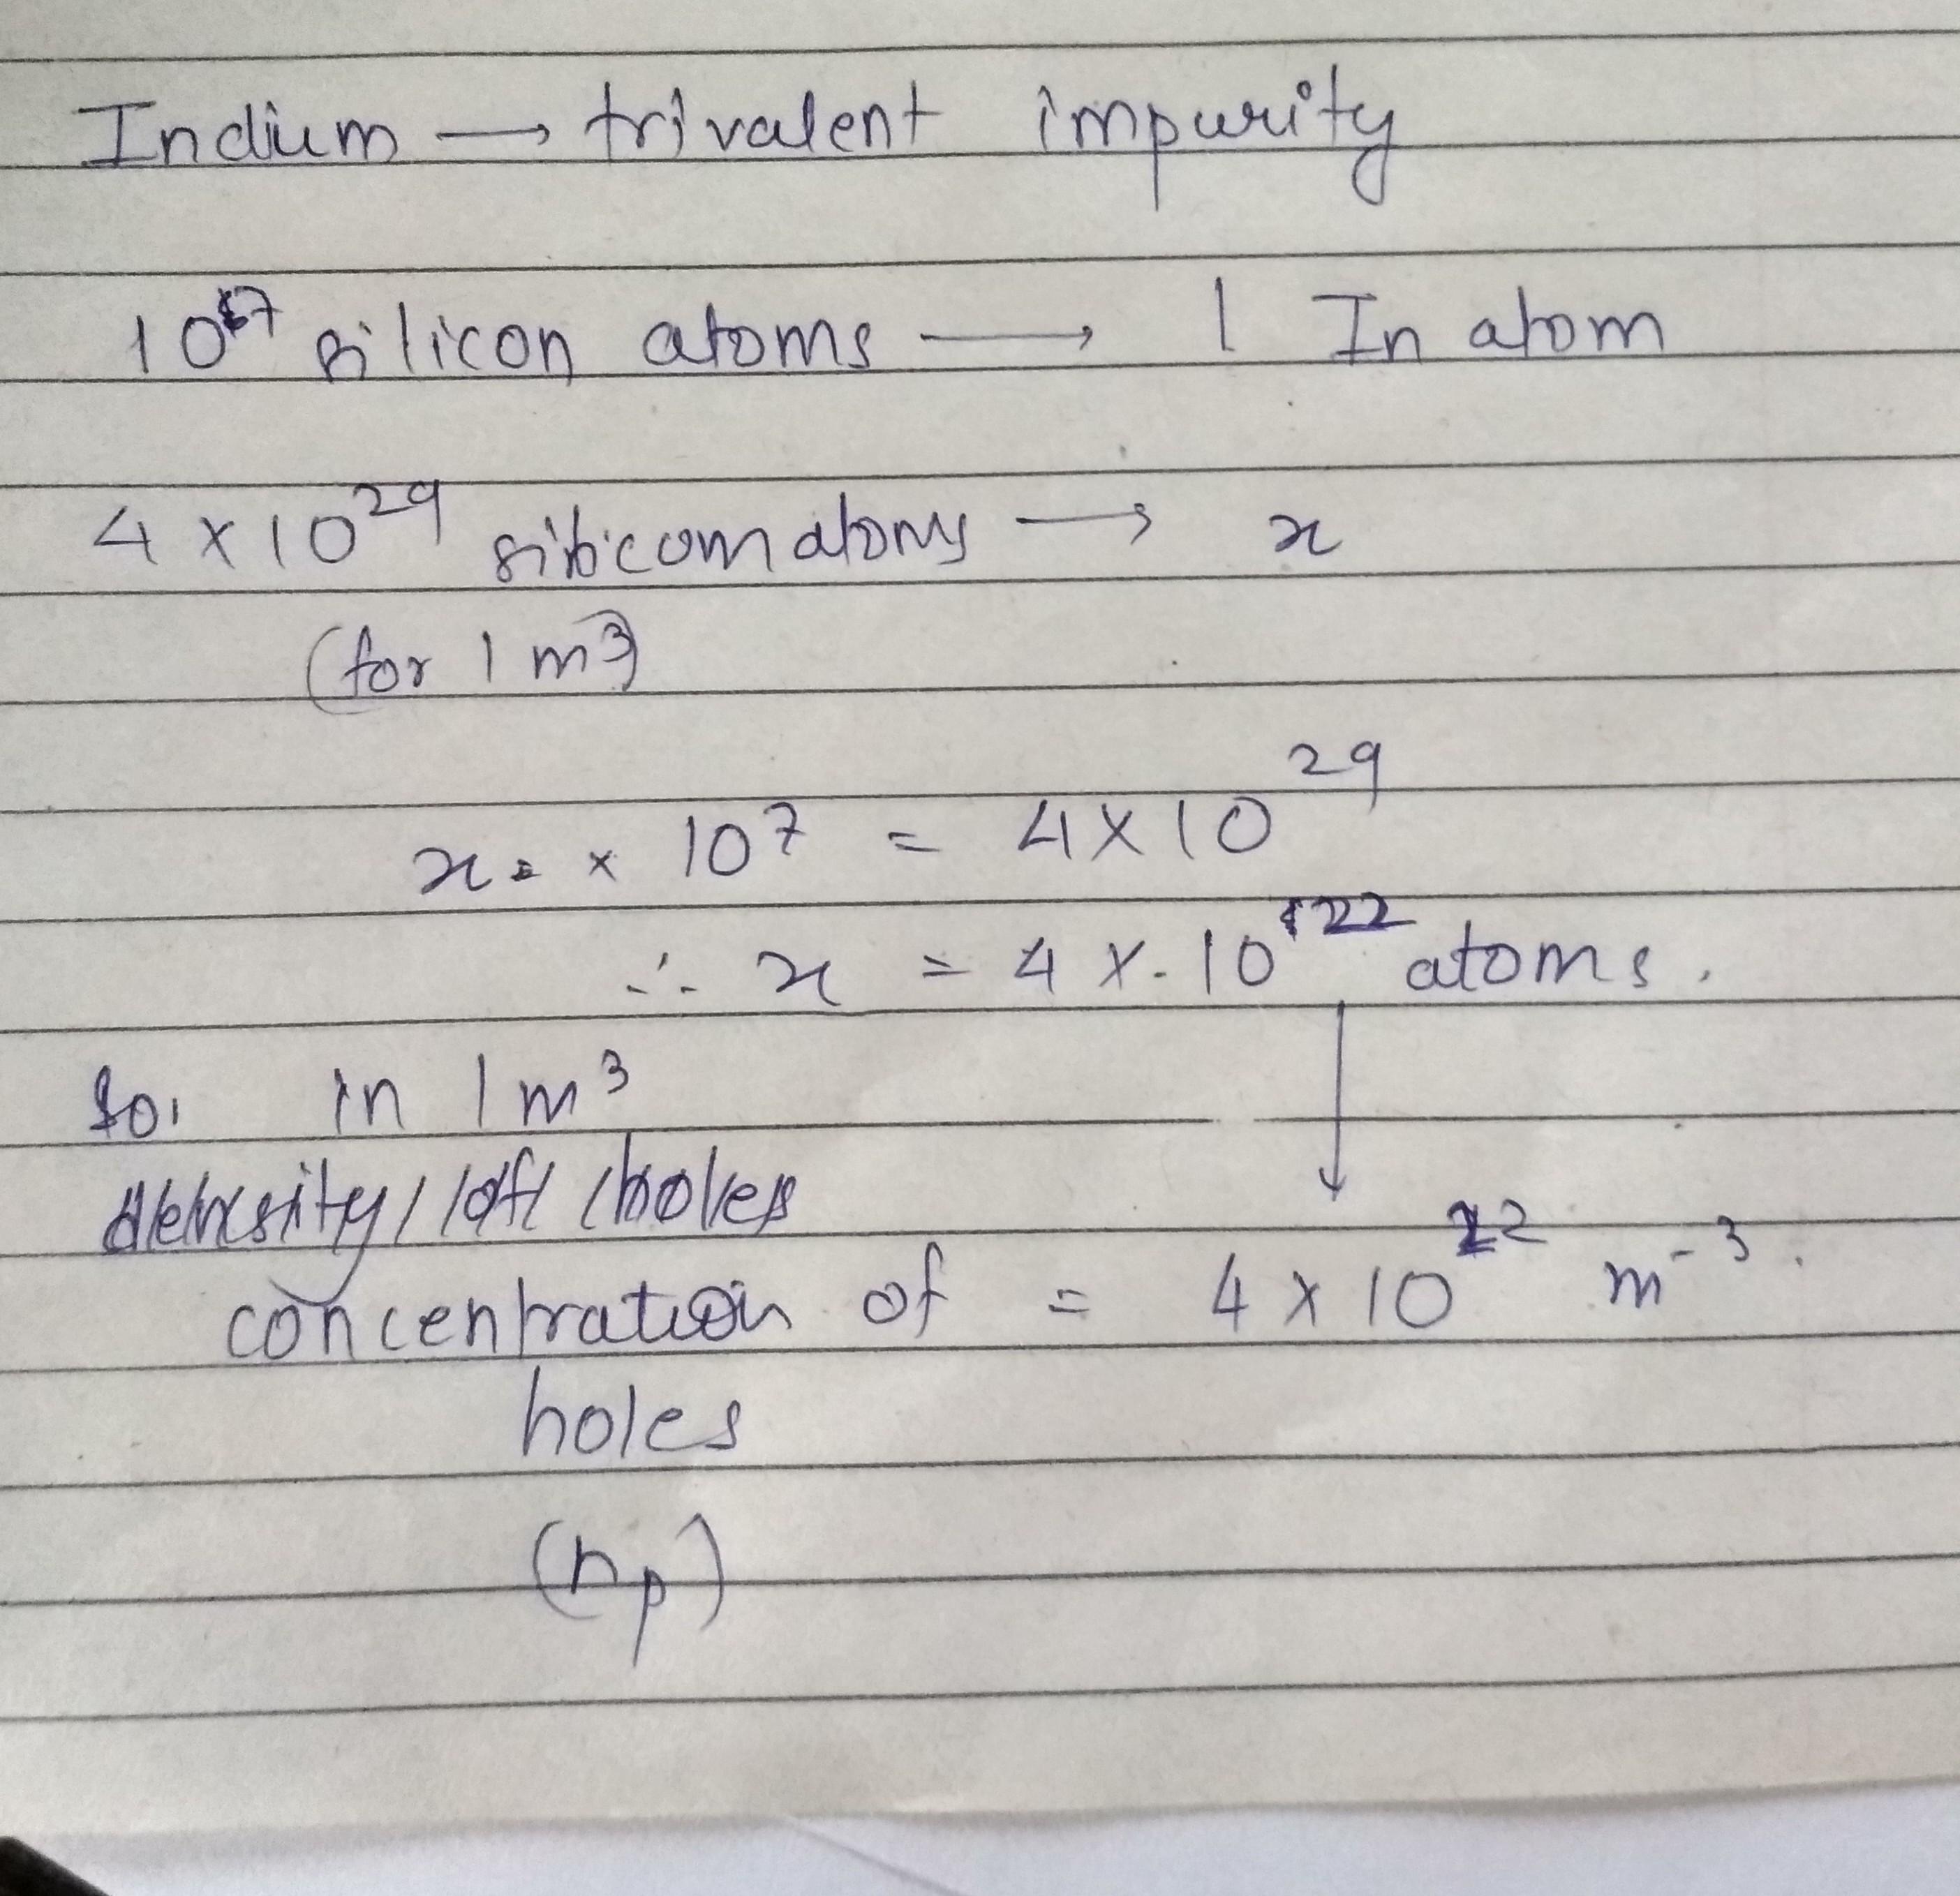 Indium → trivalent impurity
10⁷ silicon atoms → 1 In atom
4 × 10²⁹ silicom atoms → x
(for 1 m³)
x × 10⁷ = 4 × 10²⁹
∴ x = 4 × 10²² atoms.
So, in 1 m³
density of holes
concentration of = 4 × 10²² m⁻³.
holes
(np)